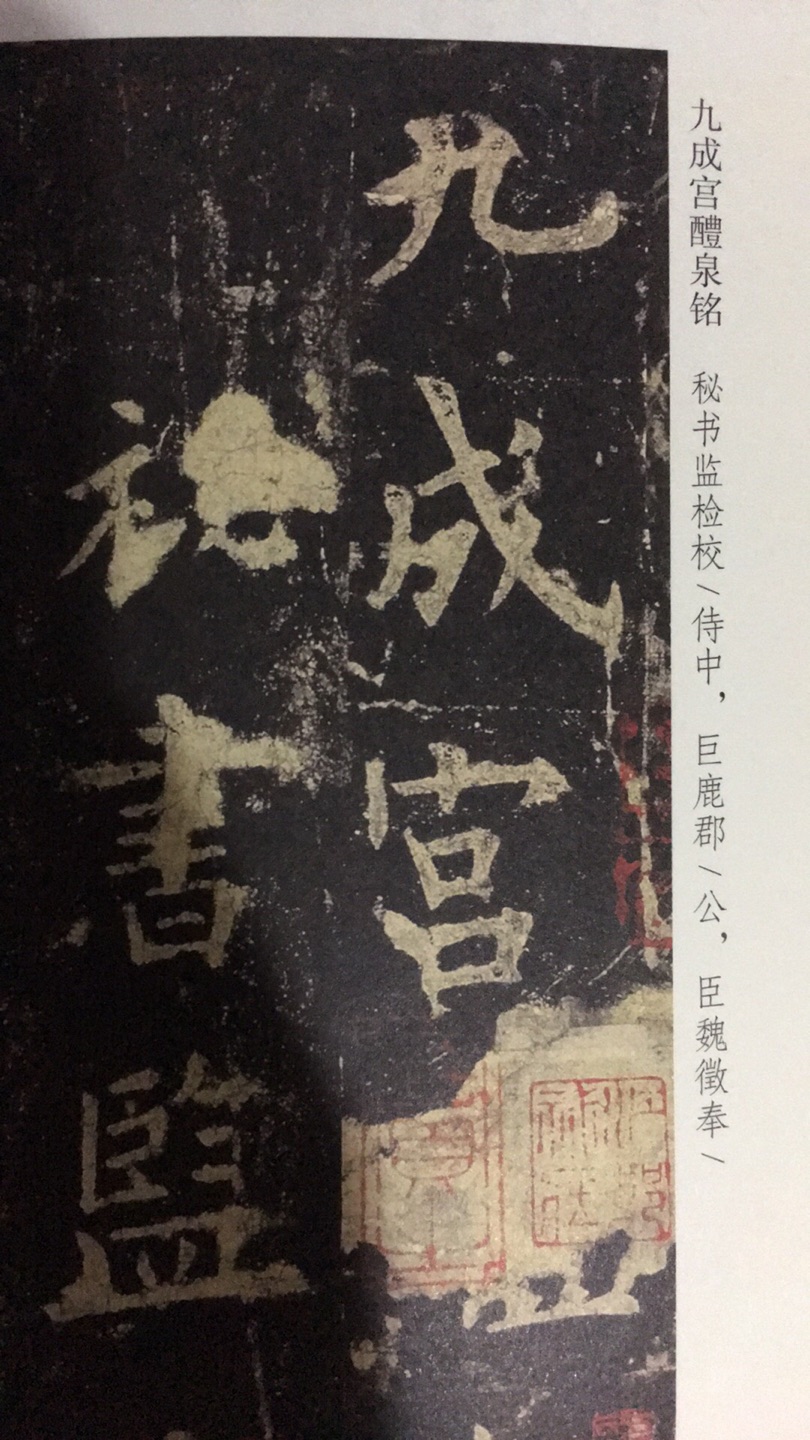 九成宫醴泉铭 秘书监检校\侍中，巨鹿郡\公，臣魏徵奉\
九成宮
祕書監